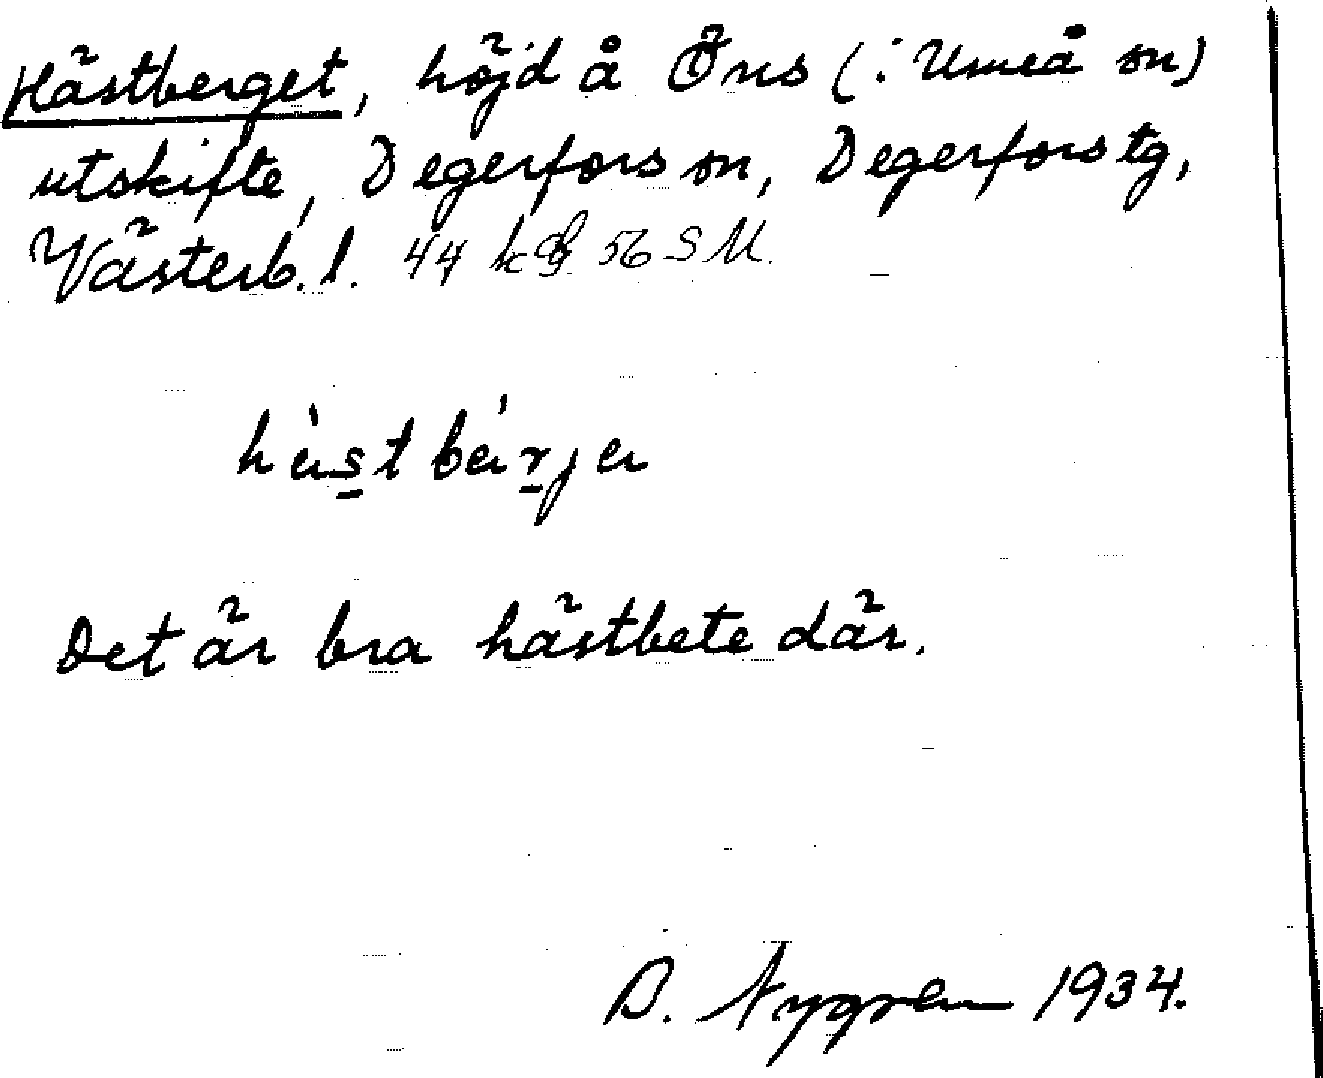 Hästberget, höjd å Öns (i Umeå sn)
utskifte, Degerfors sn, Degerfors tg,
Västerb. l. 44 kg 56 SM.
hä̀stbä́rja
Det är bra hästbete där.
Nygren 1934.